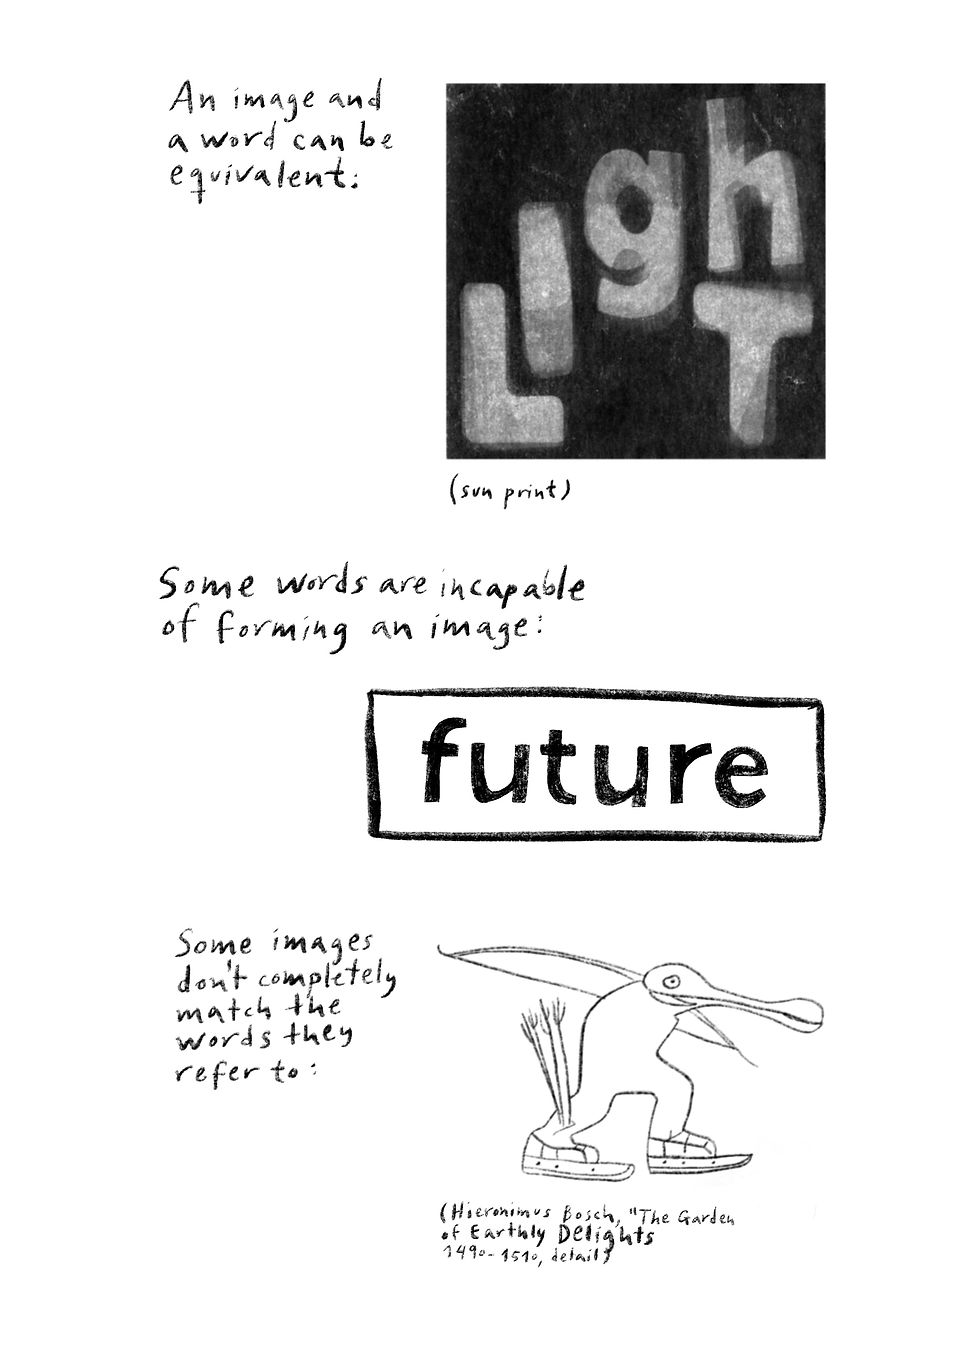 An image and
a word can be
equivalent:
LighT
(sun print)
Some words are incapable
of forming an image:
future
Some images
don't completely
match the
words they
refer to:
(Hieronimus Bosch, "The Garden
of Earthly Delights
1490-1510, detail)